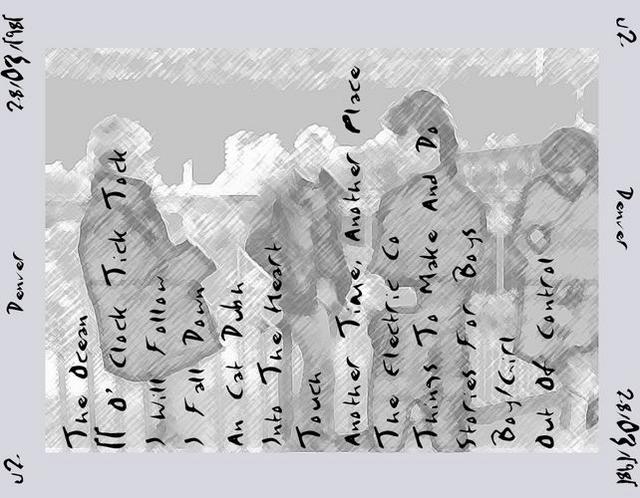 u2
Denver
28/03/1981
The Ocean
11 O' Clock Tick Tock
I Will Follow
I Fall Down
An Cat Dubh
Into The Heart
Touch
Another Time, Another Place
The Electric Co
Things To Make And Do
Stories For Boys
Boy/Girl
Out Of Control
u2
Denver
28/03/1981